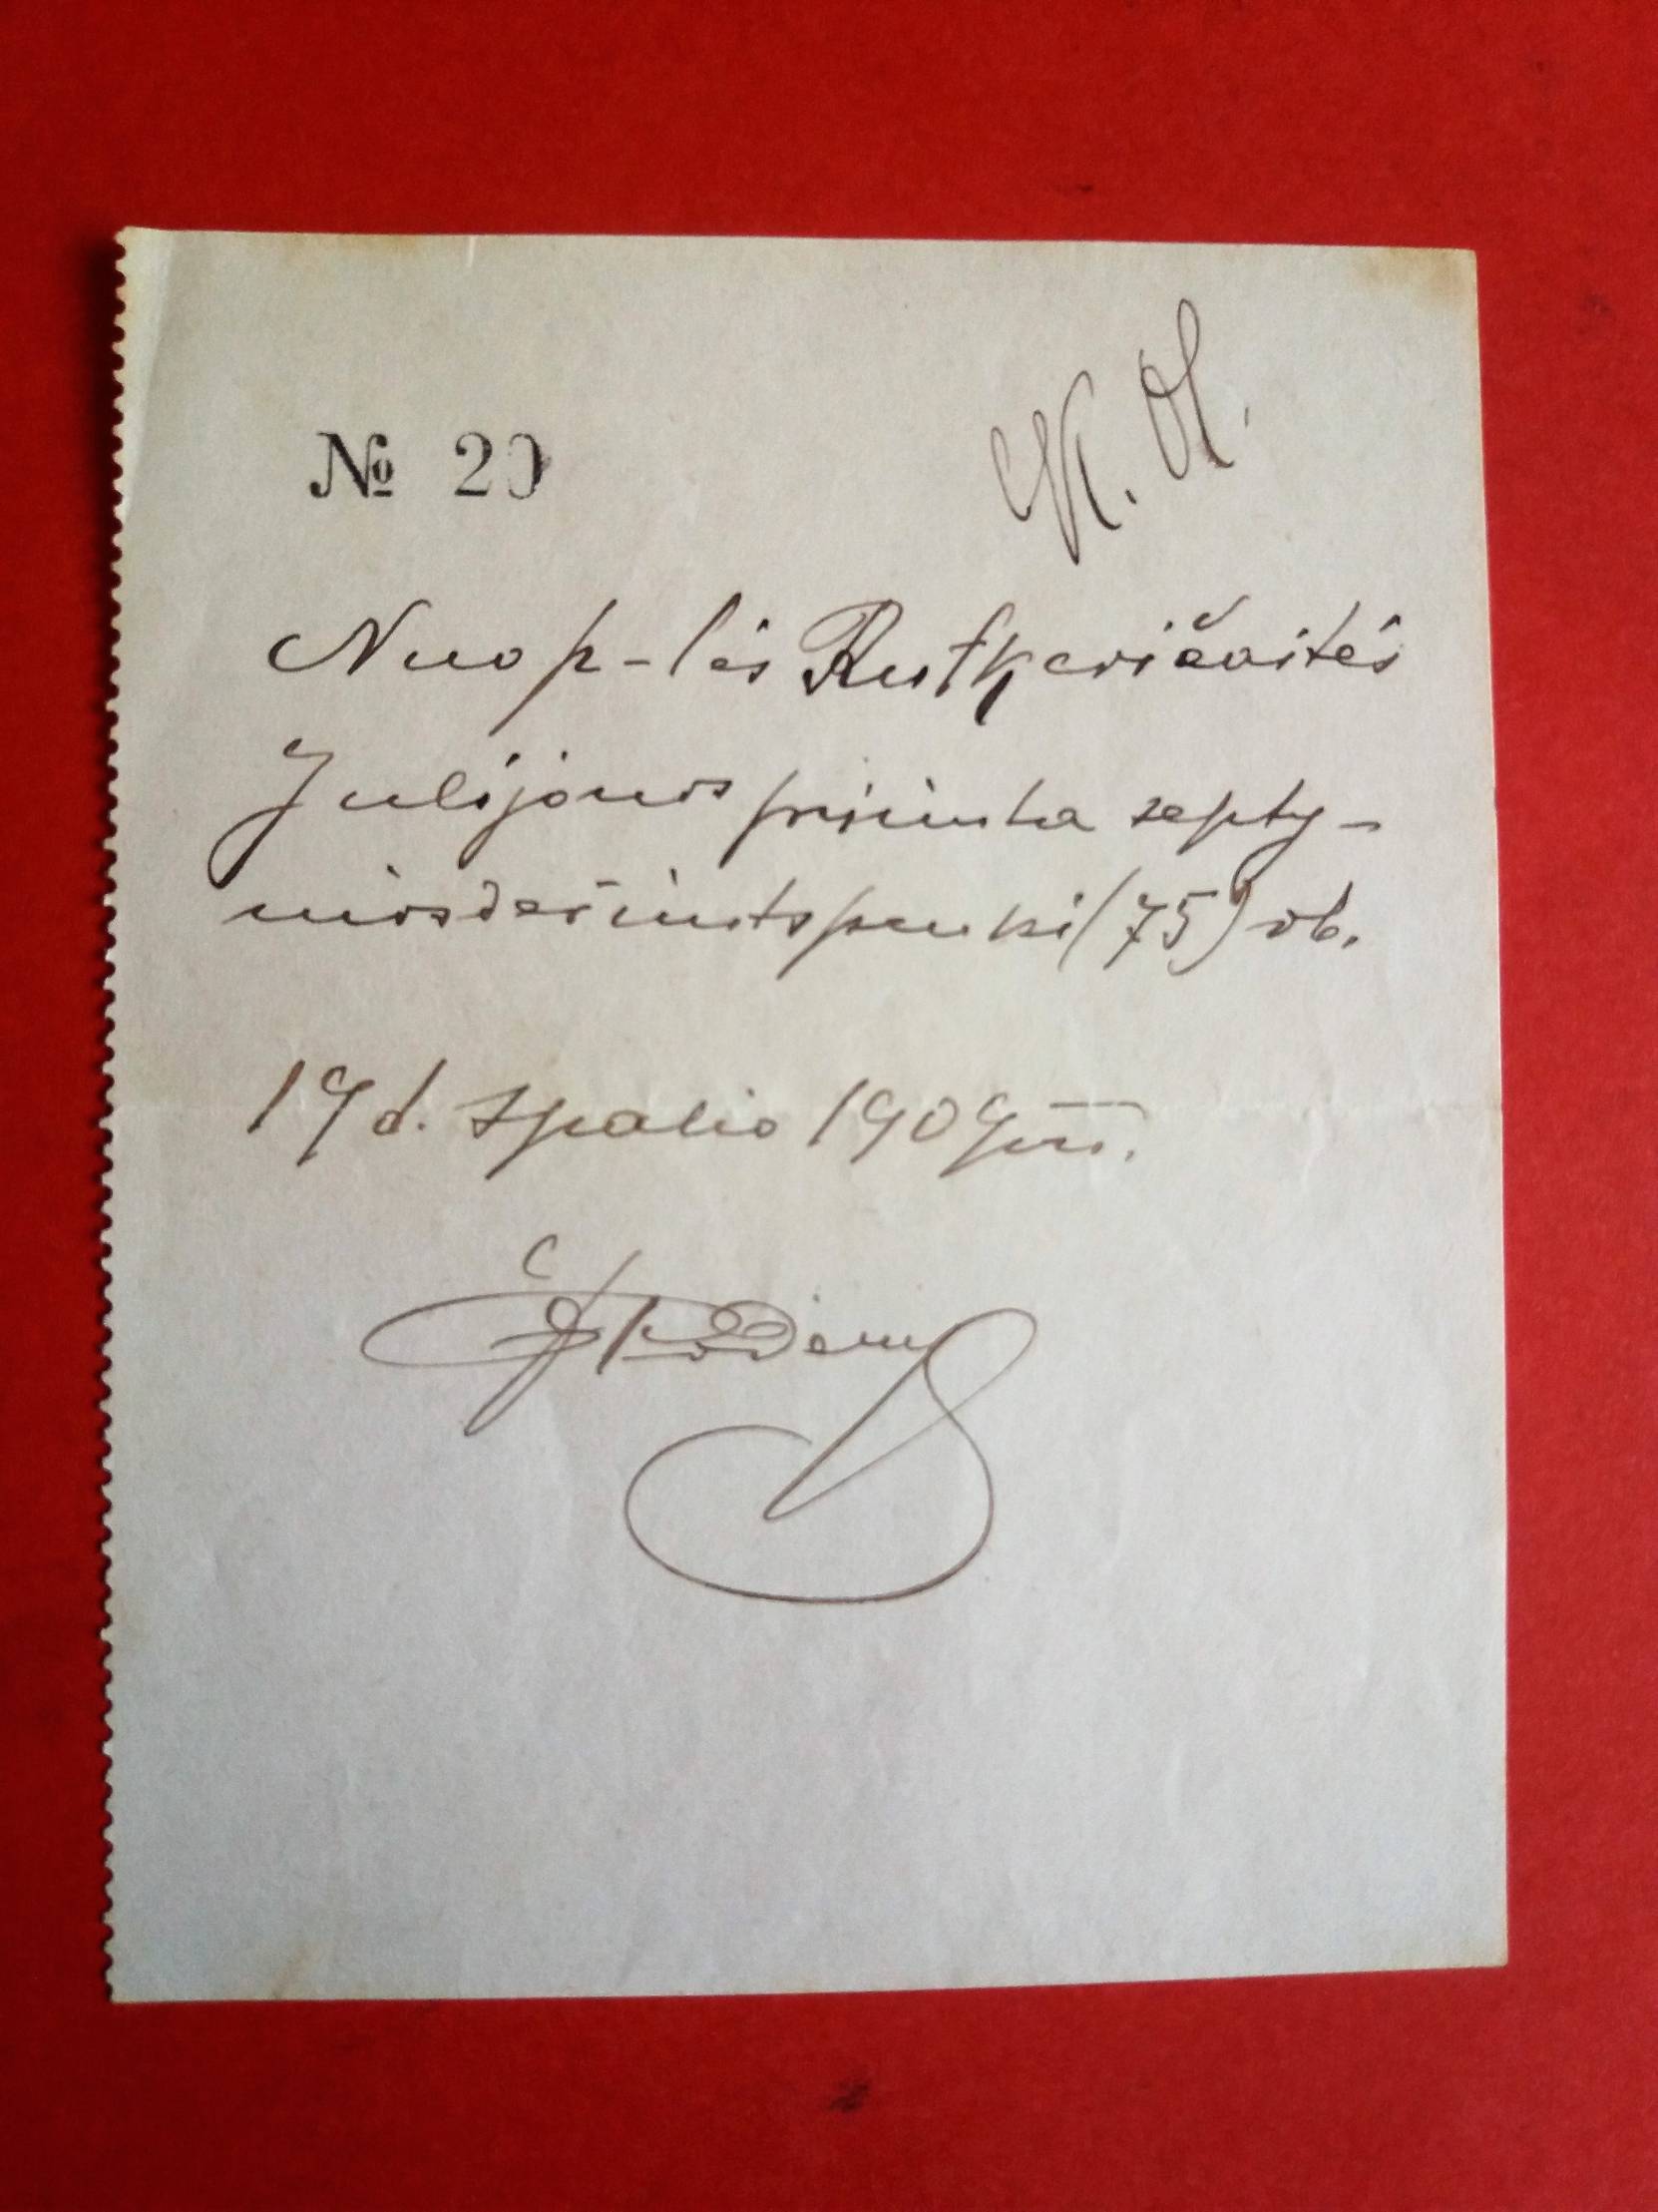 № 20
K. A.
Nuo p-lės Rutkevičaitės
Julijonos priimta septy-
niosdešimts penki (75) rb.
19 d. spalio 1909 m.